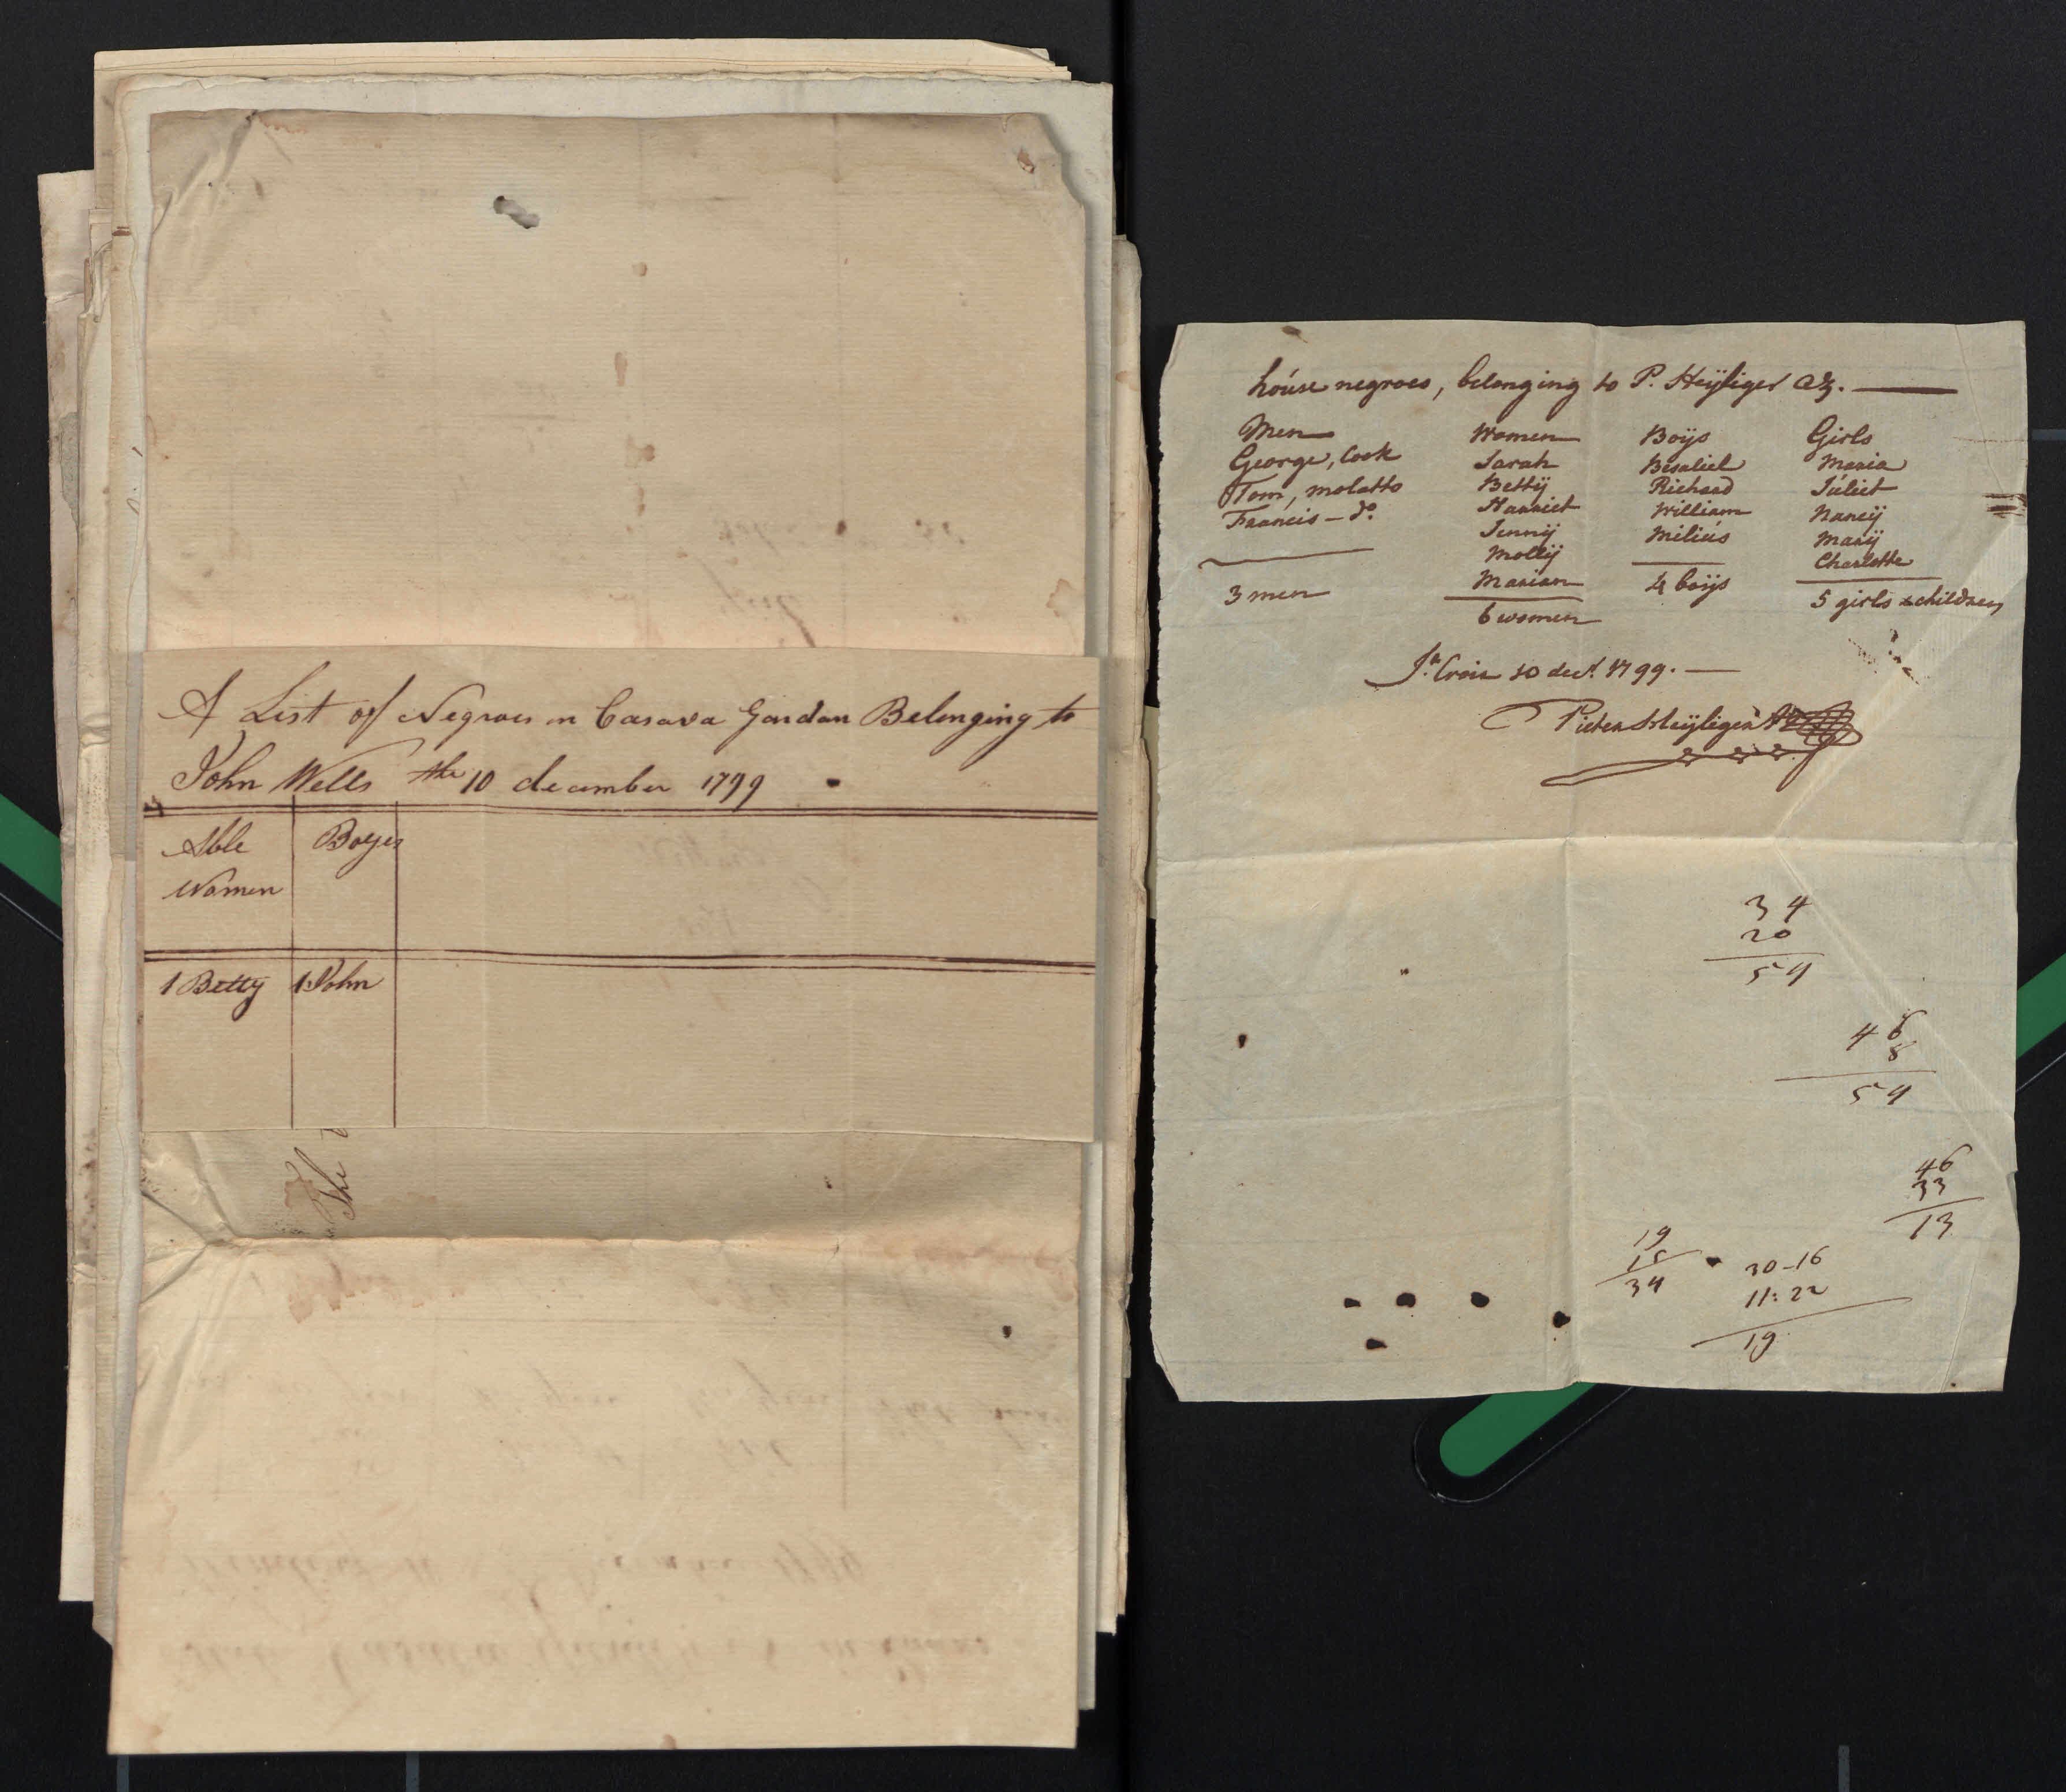 A List of Negroes in Casava Gardan Belonging to
John Wells the 10 december 1799
Able Women | Boyes
1 Betty | 1 John
The
house negroes, belonging to P. Heyliger Az.
Men Women Boijs Girls
George, Cook Sarah Besaliel Maria
Tom, molatto Bettij Richard Júliet
Francis - do. Harriet William Nancij
Jennij Miliús Marij
Mollij Charlotte
3 men Mariam 4 boijs 5 girls & children
6 women
St. Croix 10 decr. 1799.
Pieter Heyliger Az
34
20
54
46
8
54
46
33
13
19
15
34
30-16
11:22
19